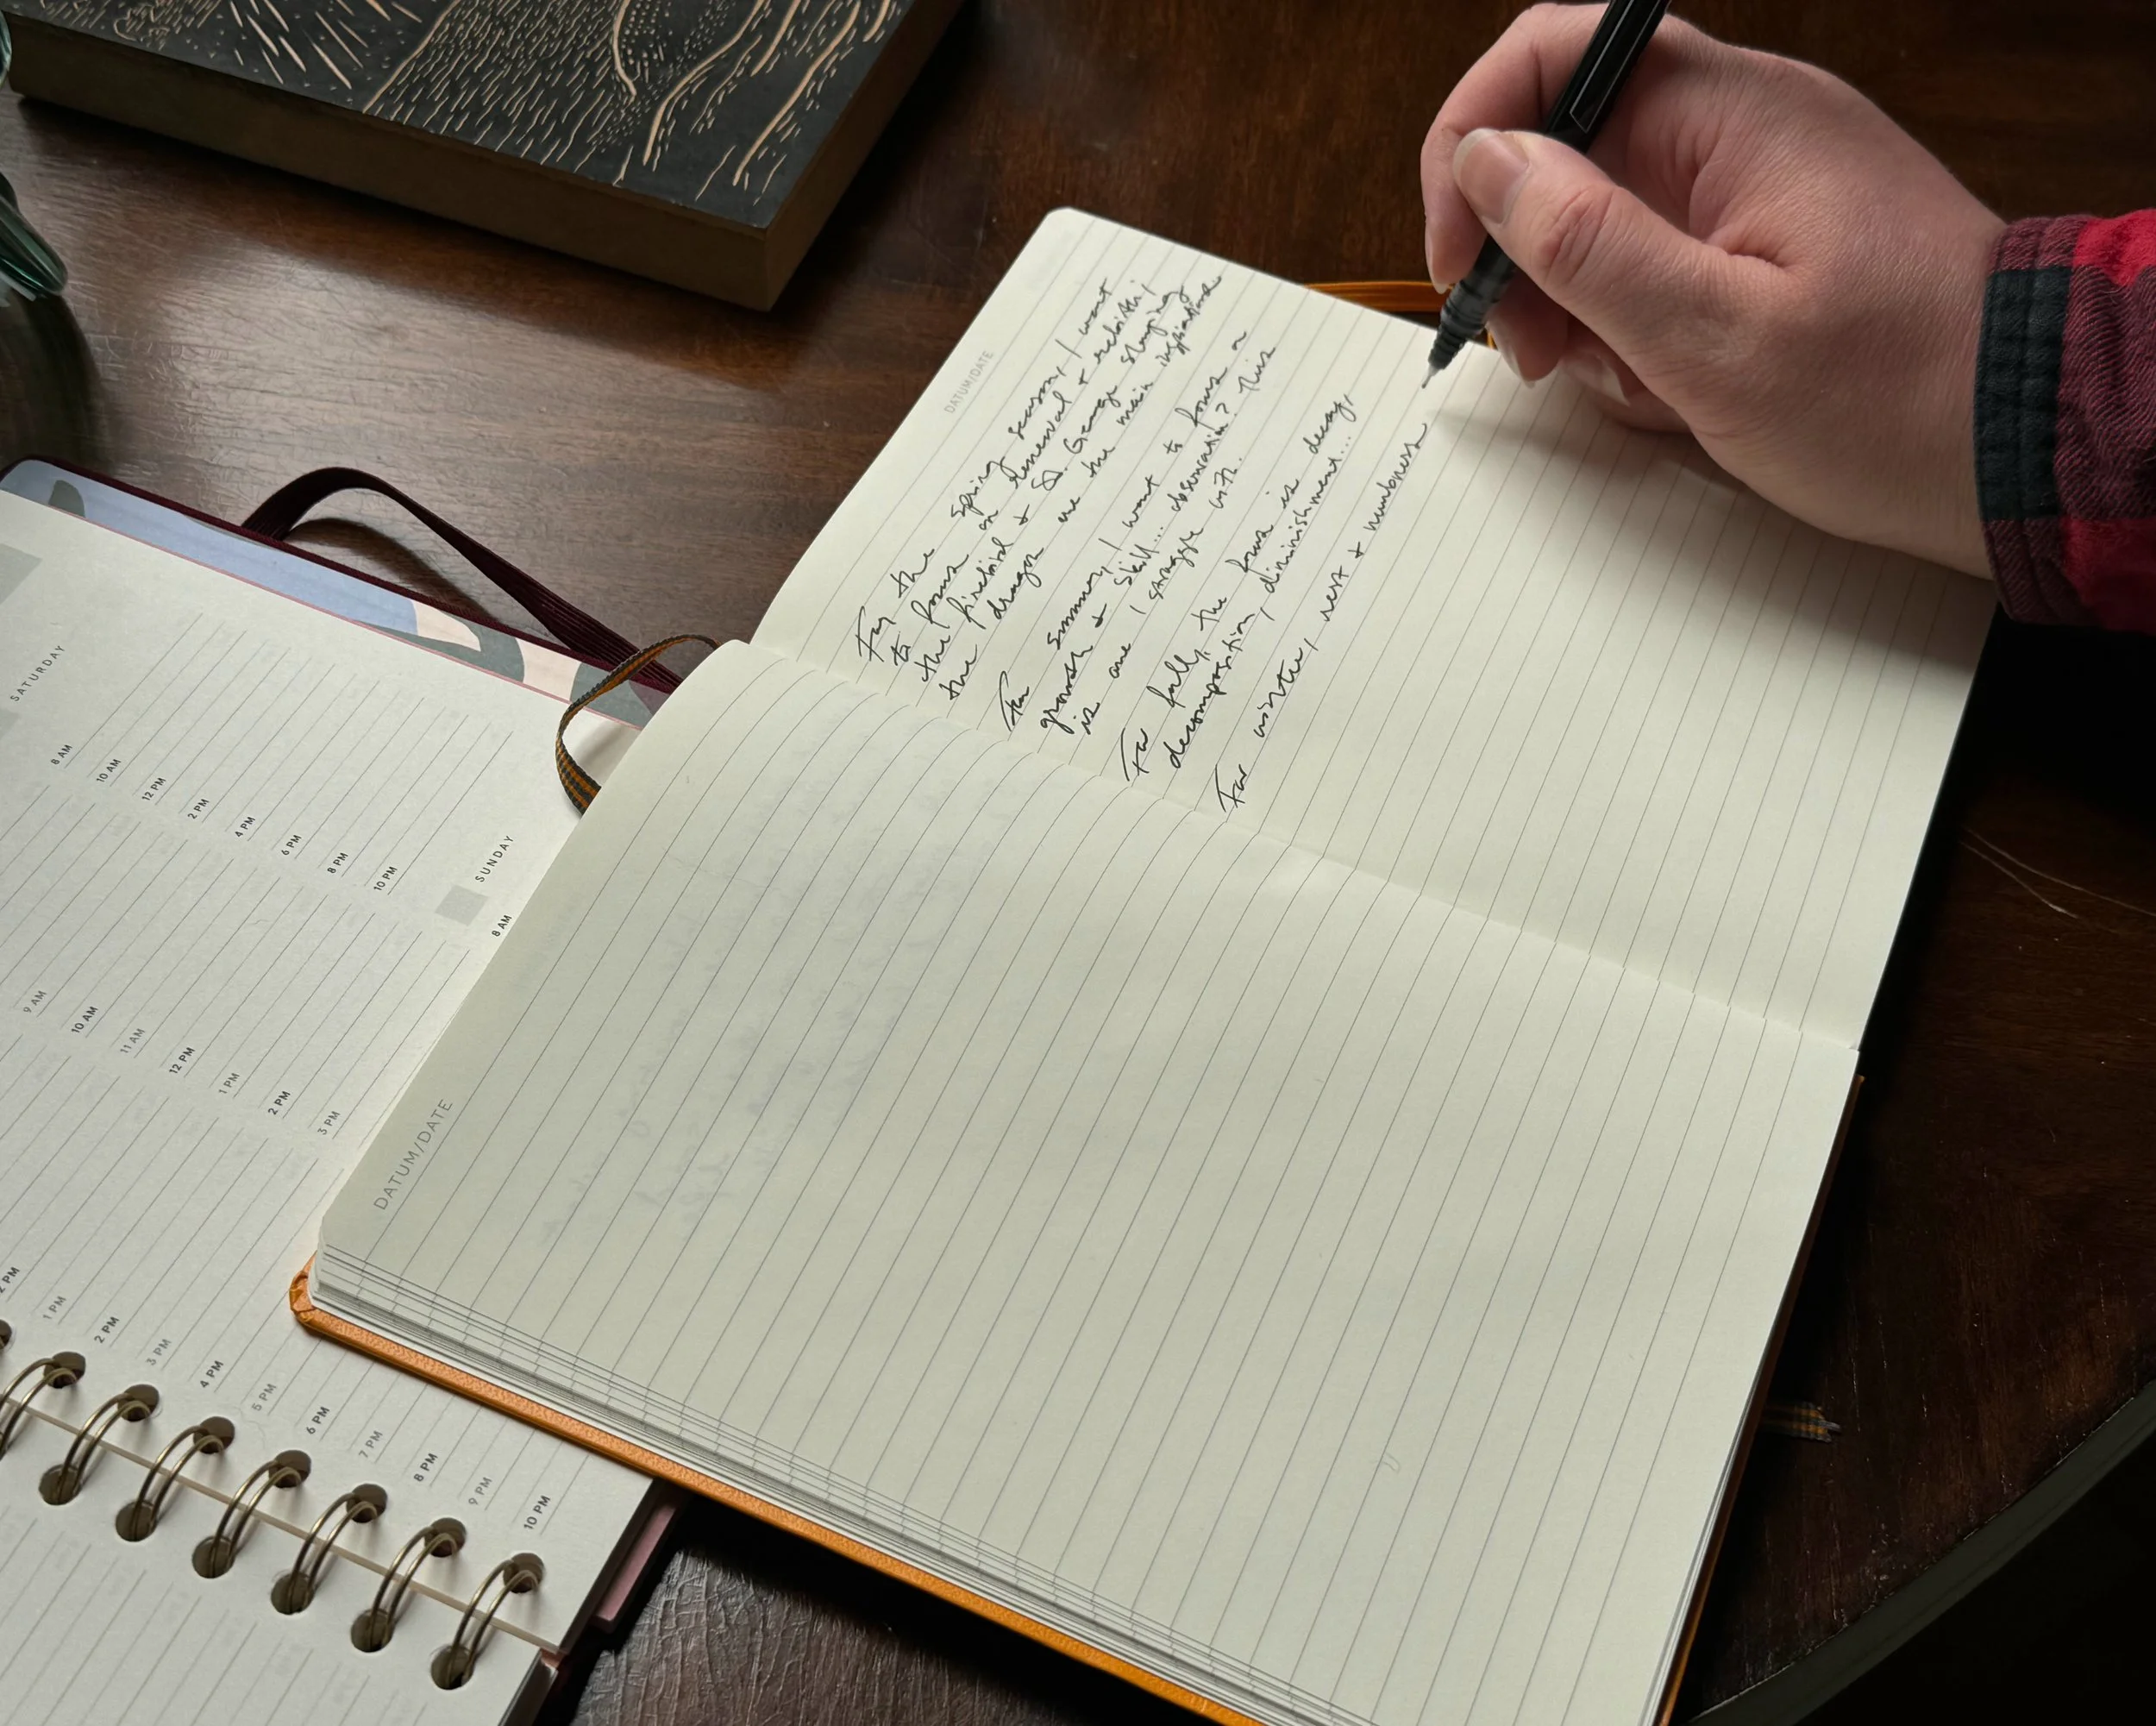 DATUM/DATE
For the spring season, I want
to focus on renewal + rebirth;
the firebird + St. George slaying
the dragon are the main inspirations
For summer, I want to focus on
growth + skill... observation? This
is one I struggle with.
For fall, the focus is decay,
decomposition, diminishment...
For winter, rest + numbness
DATUM/DATE
SATURDAY
8 AM
10 AM
12 PM
2 PM
4 PM
6 PM
8 PM
10 PM
SUNDAY
8 AM
9 AM
10 AM
11 AM
12 PM
1 PM
2 PM
3 PM
2 PM
1 PM
2 PM
3 PM
4 PM
5 PM
6 PM
7 PM
8 PM
9 PM
10 PM